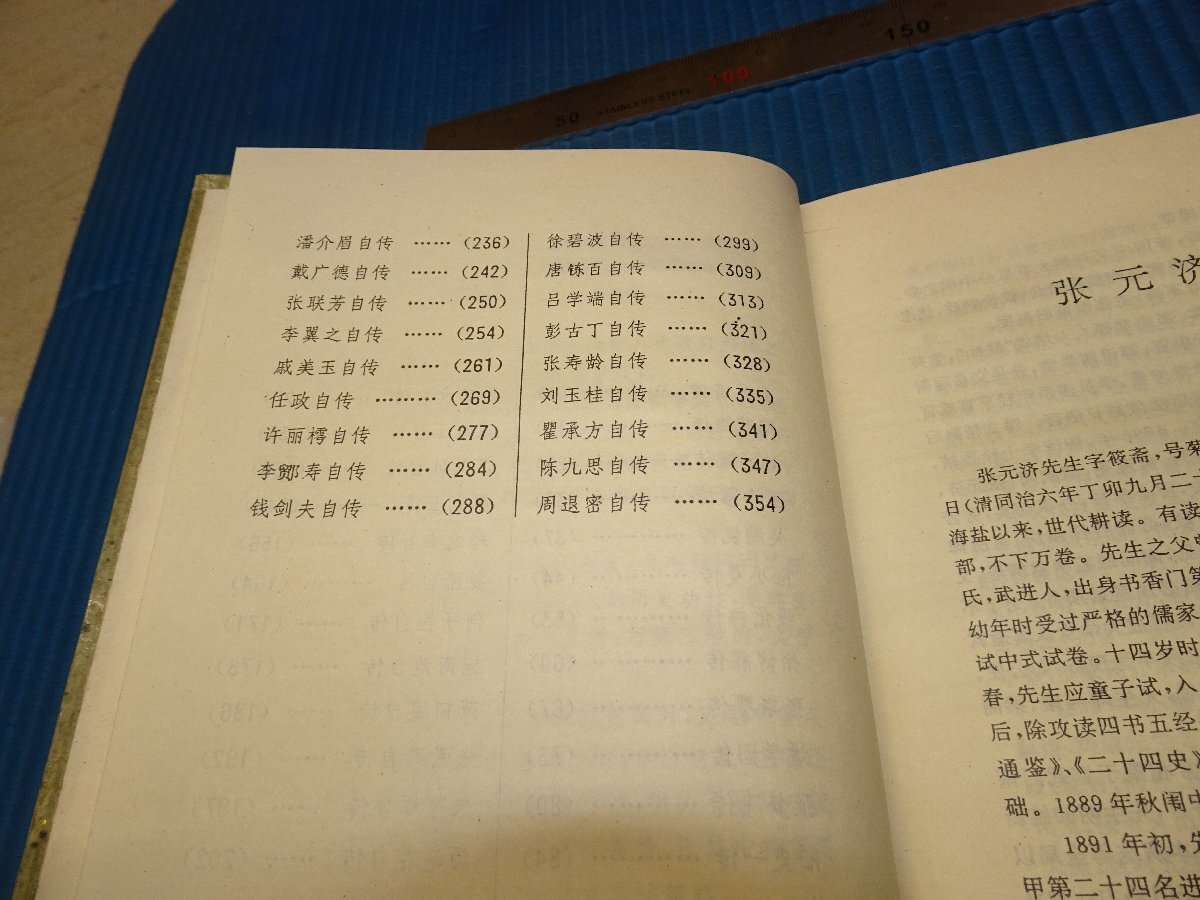 50
STAINLESS STEEL
100
150
潘介眉自传 …… (236)
戴广德自传 …… (242)
张联芳自传 …… (250)
李翼之自传 …… (254)
戚美玉自传 …… (261)
任政自传 ……… (269)
许丽樗自传 …… (277)
李寿自传 …… (284)
钱剑夫自传 …… (288)
徐碧波自传 …… (299)
唐铢百自传 …… (309)
吕学端自传 …… (313)
彭古丁自传 …… (321)
张寿龄自传 …… (328)
刘玉桂自传 …… (335)
瞿承方自传 …… (341)
陈九思自传 …… (347)
周退密自传 …… (354)
张元济
张元济先生字筱斋，号菊
日(清同治六年丁卯九月二十
海盐以来，世代耕读。有读
部，不下万卷。先生之父
氏，武进人，出身书香门第
幼年时受过严格的儒家
试中式试卷。十四岁时
春，先生应童子试，入
后，除攻读四书五经
通鉴》、《二十四史》
础。1889年秋闱中
1891年初，先
甲第二十四名进